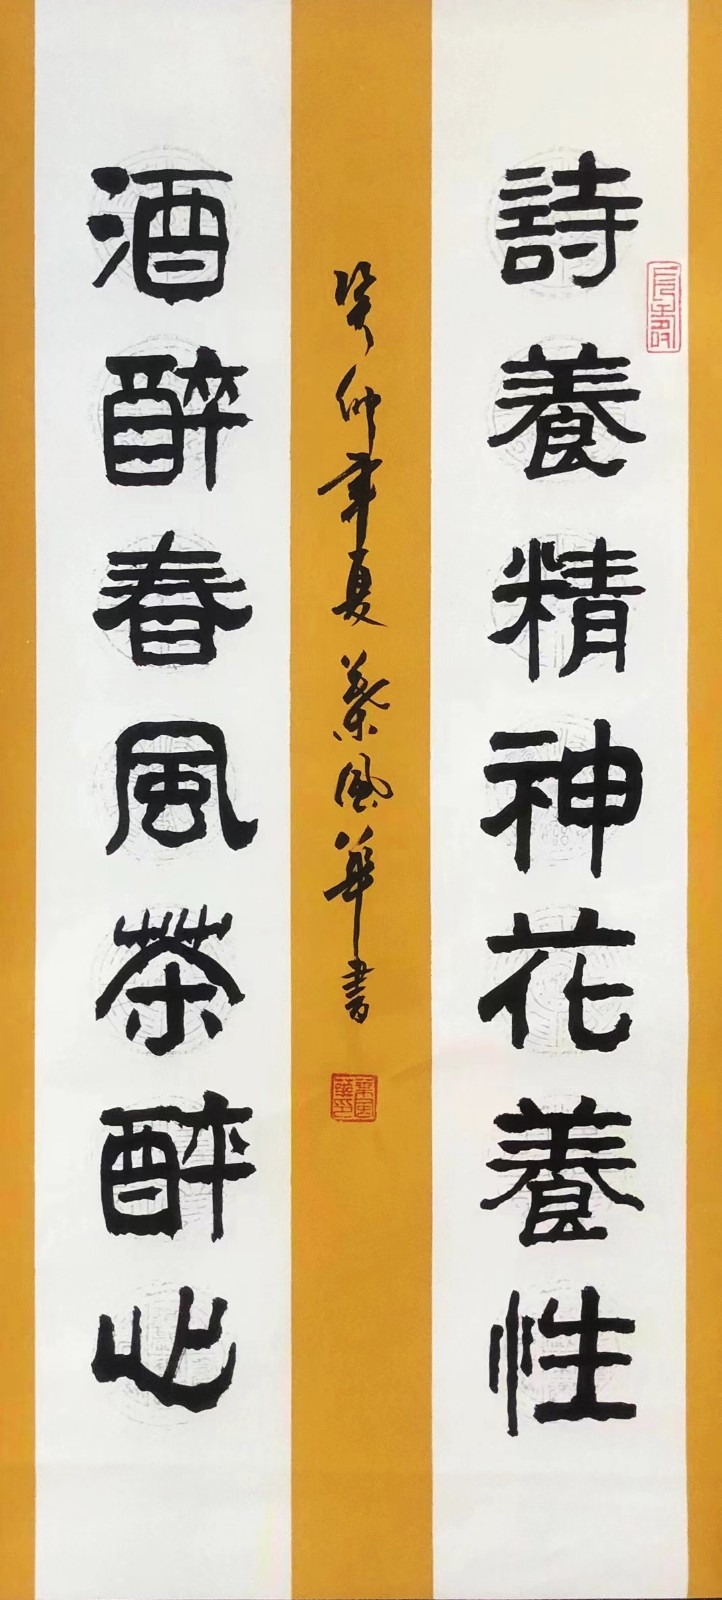 詩養精神花養性
酒醉春風茶醉心
癸卯年夏葉風華書